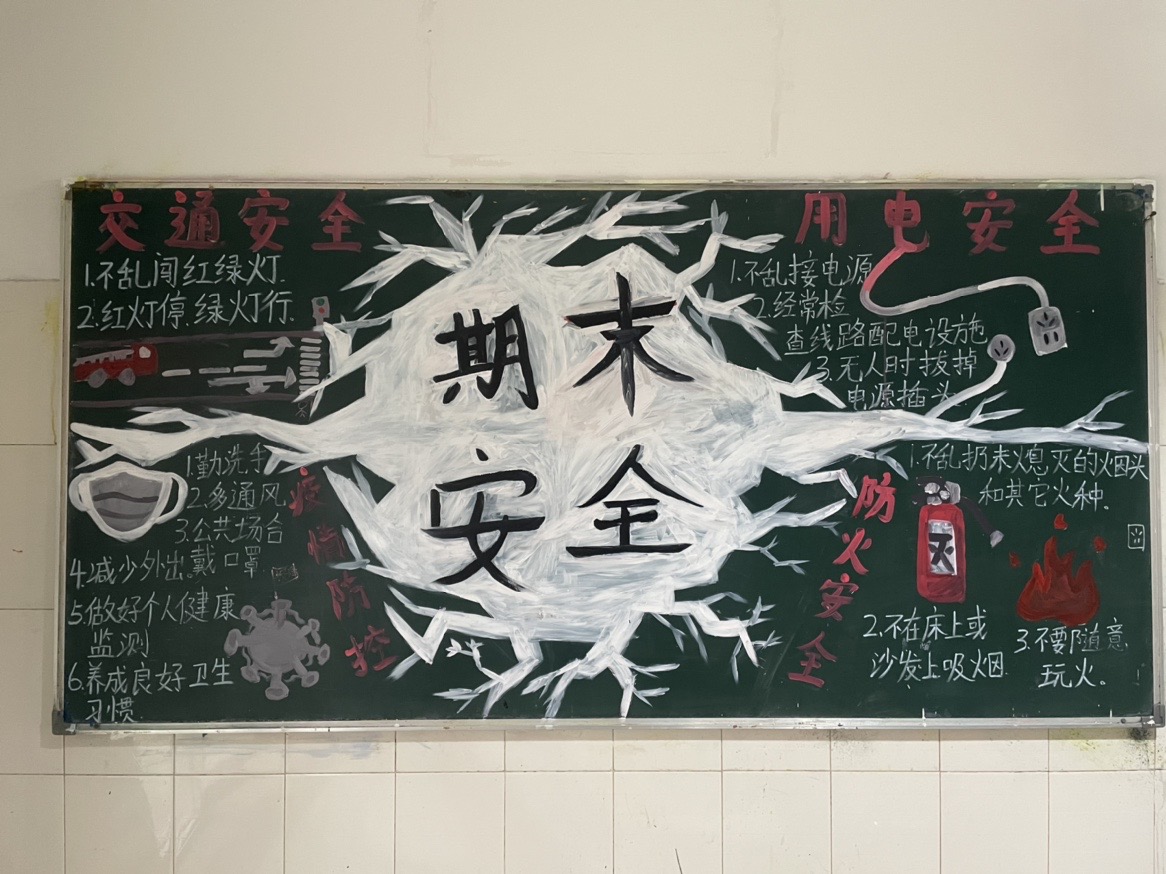 期末
安全
交通安全
1.不乱闯红绿灯.
2.红灯停.绿灯行.
用电安全
1.不乱接电源
2.经常检
查线路配电设施
3.无人时拔掉
电源插头.
疫情防控
1.勤洗手
2.多通风
3.公共场合
戴口罩
4.减少外出.
5.做好个人健康
监测
6.养成良好卫生
习惯.
防火安全
1.不乱扔未熄灭的烟头
和其它火种。
灭
2.不在床上或
沙发上吸烟.
3.不要随意
玩火。